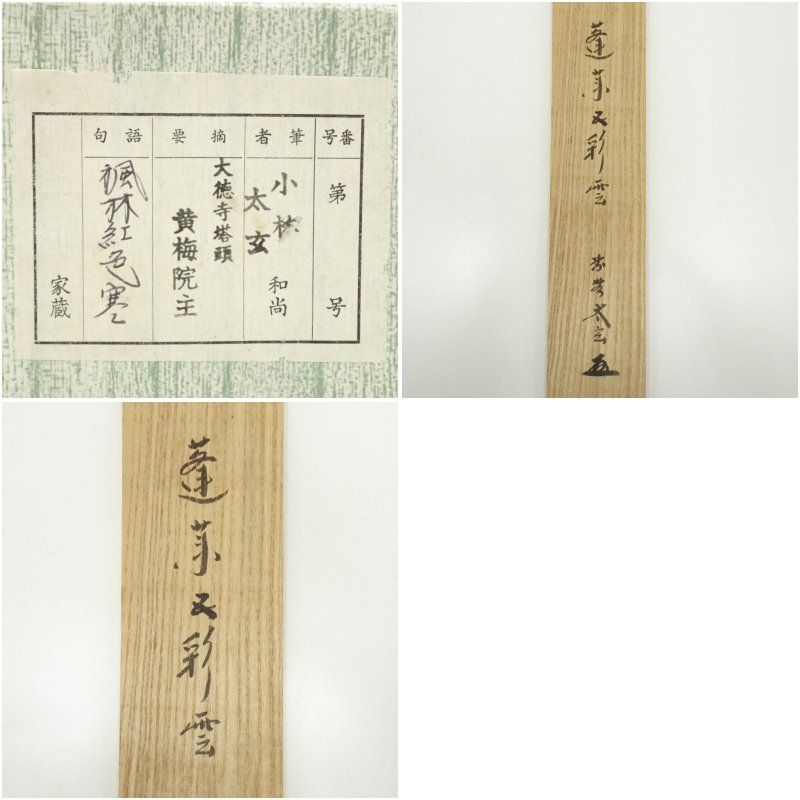 番号
第 号
筆者
小林
太玄
和尚
摘要
大徳寺塔頭
黄梅院主
語句
楓林紅色寒
家蔵
蓬莱五彩雲
紫野太玄
蓬莱五彩雲